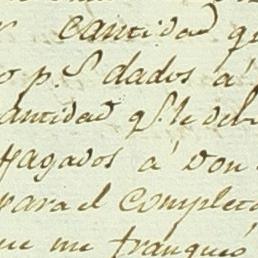 cantidad q
o p.s dados á
antidad q.e le deb
pagados á Don
para el complet
ue me franqueó